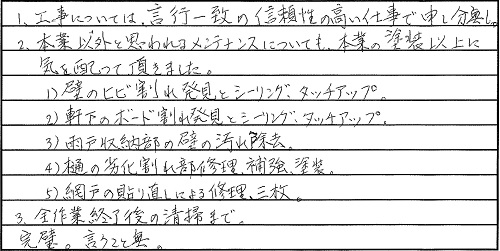 1. 工事については、言行一致の信頼性の高い仕事で申し分無し。
2. 本業以外と思われるメンテナンスについても、本業の塗装以上に
気を配って頂きました。
1) 壁のヒビ割れ発見とシーリング、タッチアップ。
2) 軒下のボード割れ発見とシーリング、タッチアップ。
3) 雨戸収納部の壁の汚れ除去。
4) 樋の劣化割れ部修理、補強、塗装。
5) 網戸の貼り直しによる修理、三枚。
3. 全作業終了後の清掃まで。
完璧。言うこと無。